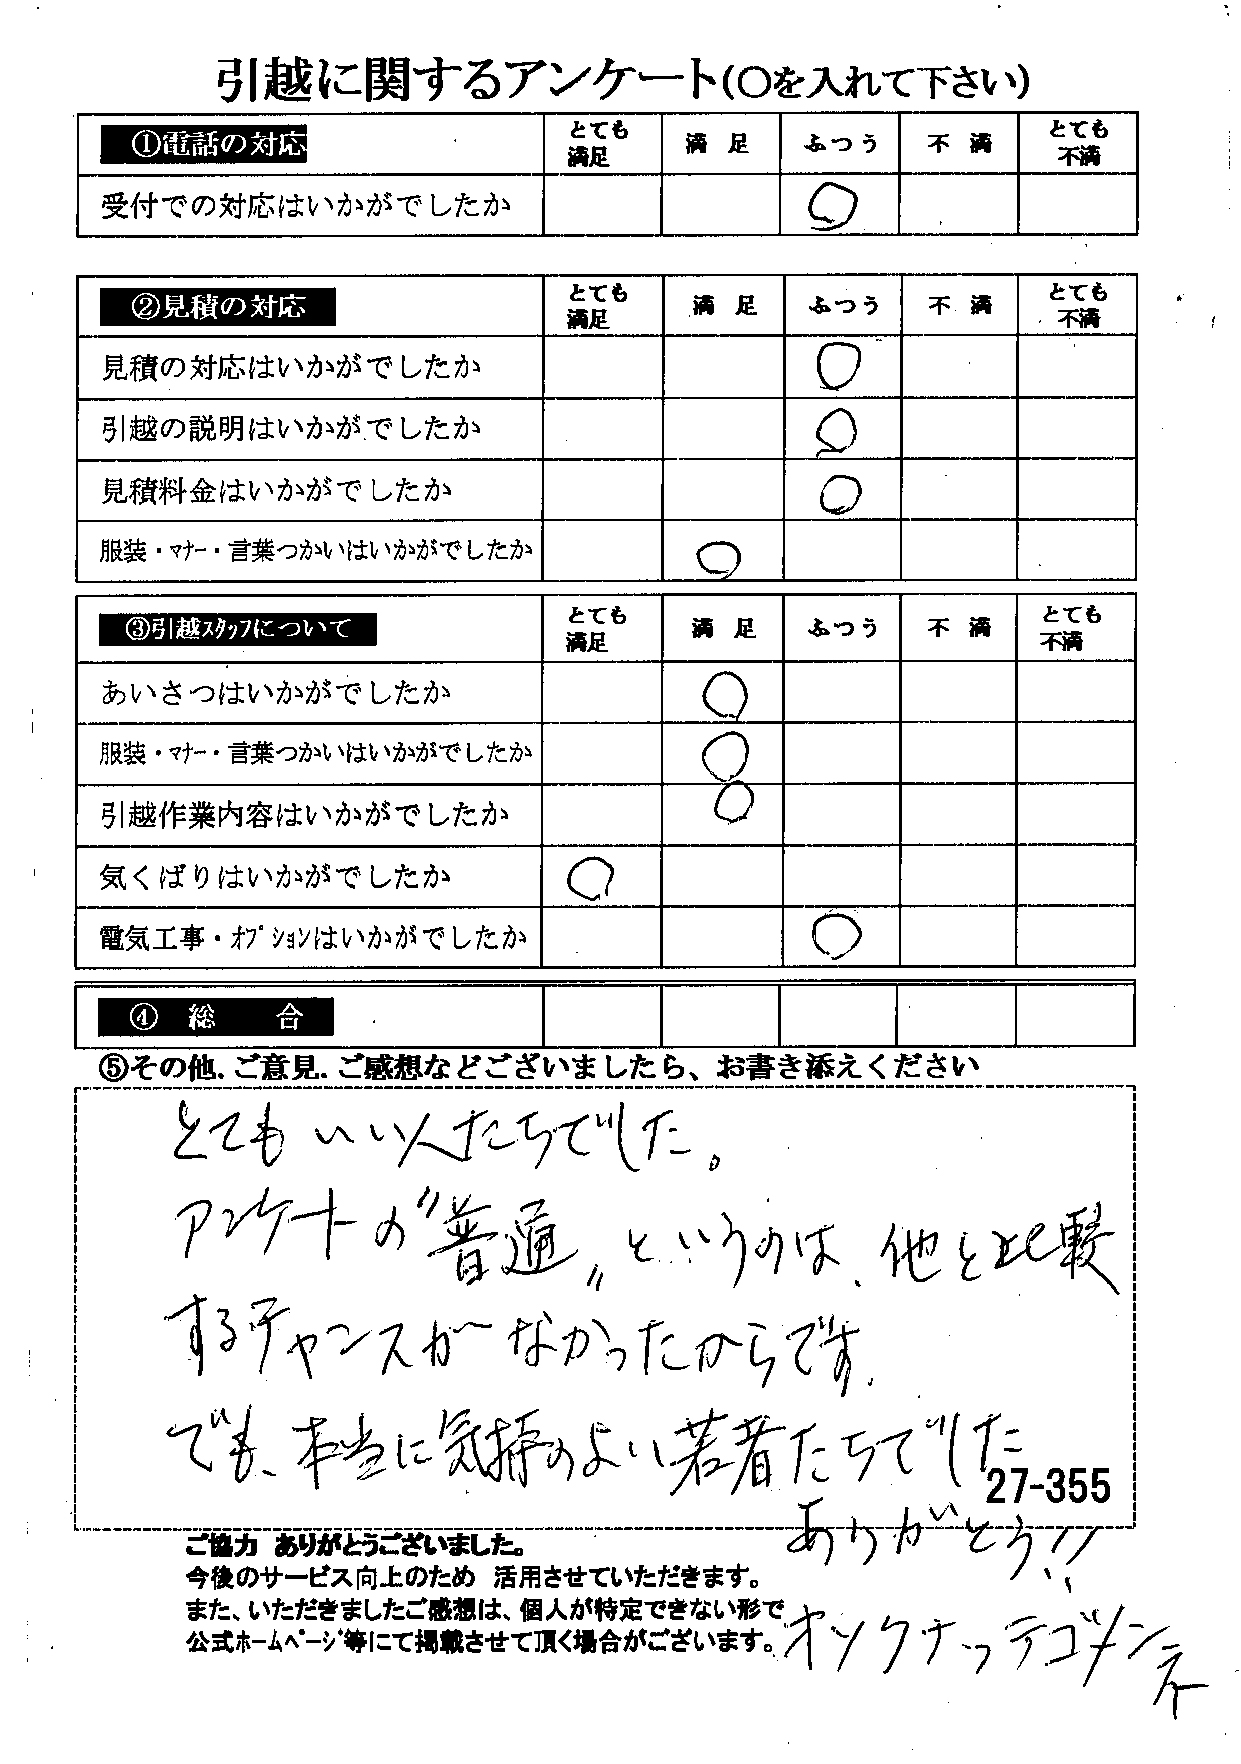 引越に関するアンケート(〇を入れて下さい)
①電話の対応 とても満足 満足 ふつう 不満 とても不満
受付での対応はいかがでしたか 〇
②見積の対応 とても満足 満足 ふつう 不満 とても不満
見積の対応はいかがでしたか 〇
引越の説明はいかがでしたか 〇
見積料金はいかがでしたか 〇
服装・マナー・言葉つかいはいかがでしたか 〇
③引越スタッフについて とても満足 満足 ふつう 不満 とても不満
あいさつはいかがでしたか 〇
服装・マナー・言葉つかいはいかがでしたか 〇
引越作業内容はいかがでしたか 〇
気くばりはいかがでしたか 〇
電気工事・オプションはいかがでしたか 〇
④ 総 合
⑤その他.ご意見.ご感想などございましたら、お書き添えください
とてもいい人たちでした。
アンケートの〝普通〟というのは、他と比較
するチャンスがなかったからです.
でも、本当に気持のよい若者たちでした
27-355
ありがとう!!
ご協力 ありがとうございました。
今後のサービス向上のため 活用させていただきます。
また、いただきましたご感想は、個人が特定できない形で
公式ホームページ等にて掲載させて頂く場合がございます。
オソクナッテゴメンネ